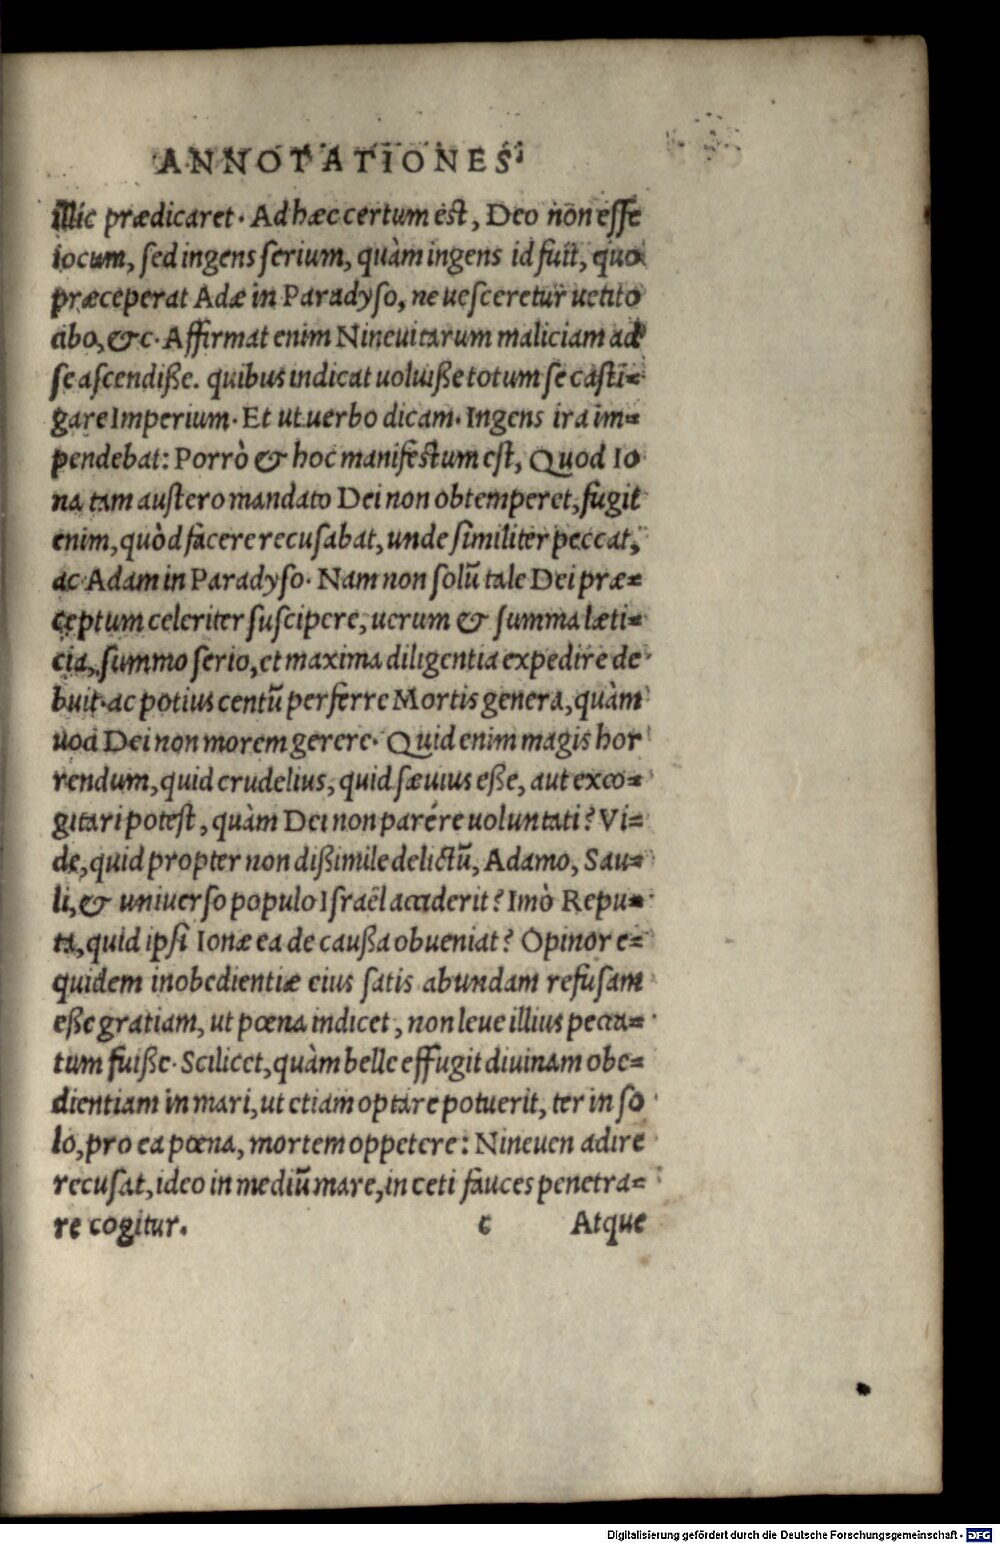 ANNOTATIONES
illic prædicaret. Ad hæc certum est, Deo non esse
iocum, sed ingens serium, quàm ingens id fuit, quo
præceperat Adæ in Paradyso, ne uesceretur uetito
cibo, &c. Affirmat enim Nineuitarum maliciam ad
se ascendiße. quibus indicat uoluiße totum se casti=
gare Imperium. Et ut uerbo dicam. Ingens ira im=
pendebat: Porrò & hoc manifestum est, Quod Io
na tam austero mandato Dei non obtemperet, fugit
enim, quòd facere recusabat, unde similiter peccat,
ac Adam in Paradyso. Nam non solũ tale Dei præ=
ceptum celeriter suscipere, uerum & summa læti=
cia, summo serio, et maxima diligentia expedire de
buit. ac potius centũ perferre Mortis genera, quàm
uoci Dei non morem gerere. Quid enim magis hor
rendum, quid crudelius, quid sæuius eße, aut exco=
gitari potest, quàm Dei non parére uoluntati? Vi=
de, quid propter non dißimile delictũ, Adamo, Sau=
li, & uniuerso populo Israël acciderit? Imò Repu=
ta, quid ipsi Ionæ ea de caußa obueniat? Opinor e=
quidem inobedientiæ eius satis abundam refusam
eße gratiam, ut pœna indicet, non leue illius pecca=
tum fuiße. Scilicet, quàm belle effugit diuinam obe=
dientiam in mari, ut etiam optare potuerit, ter in so
lo, pro ea pœna, mortem oppetere: Nineuen adire
recusat, ideo in mediũ mare, in ceti fauces penetra=
re cogitur. c Atque
Digitalisierung gefördert durch die Deutsche Forschungsgemeinschaft - DFG